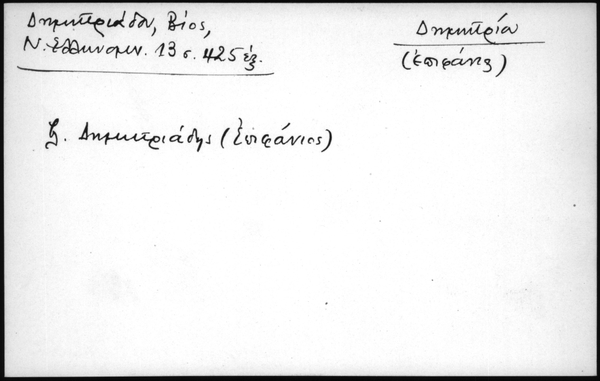 Δημητριάδου, Βίος,
Ν. Ελληνομν. 13 σ. 425 ἑξ.
Δημητρίου
(Ἐπιφάνιος)
β. Δημητριάδης (Ἐπιφάνιος)